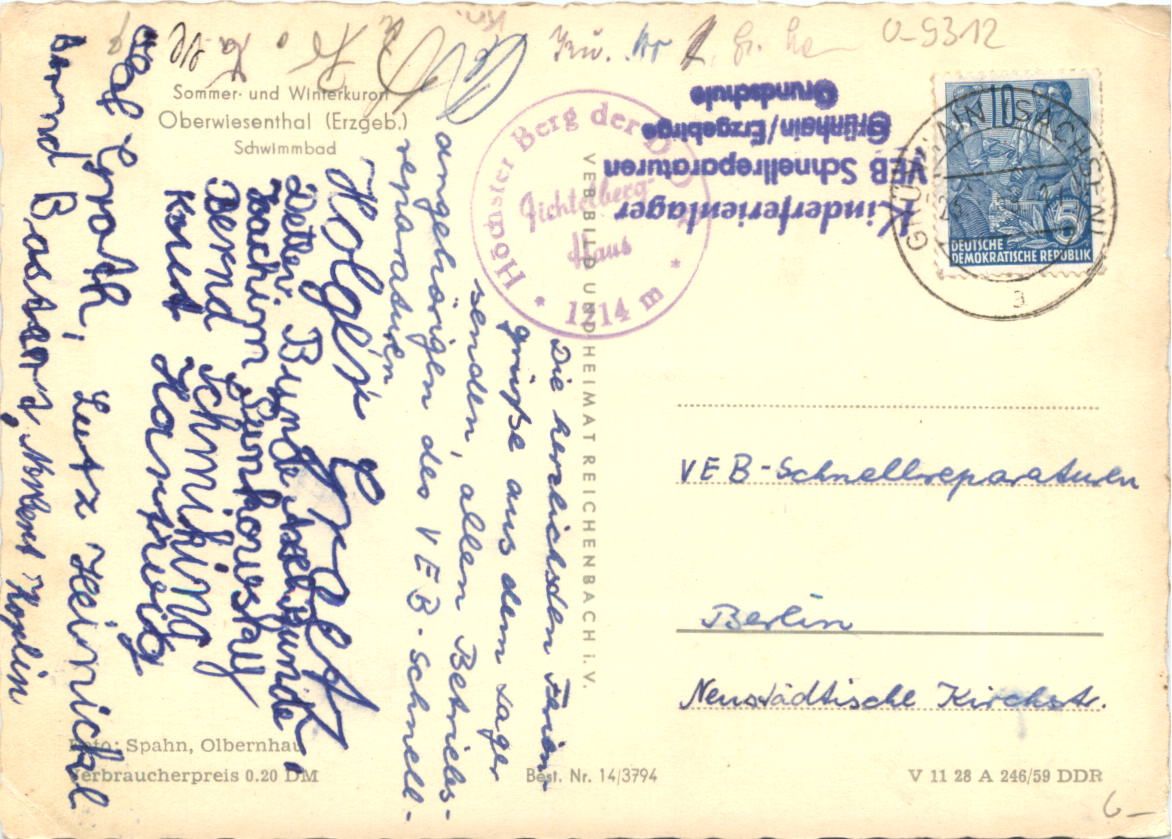 Sommer- und Winterkurort
Oberwiesenthal (Erzgeb.)
Schwimmbad
Die herzlichsten Ferien-
grüße aus dem Lager
senden allen Betriebs-
angehörigen des VEB-Schnell-
reparaturen
Holger
Detlef
Joachim
Bernd
Knut Hartwig
Olaf Groth, Lutz Heinickel
Bernd Bastian, Norbert Koplin
Foto: Spahn, Olbernhau
Verbraucherpreis 0.20 DM
Best. Nr. 14/3794
VEB BILD UND HEIMAT REICHENBACH i. V.
Höchster Berg der DDR
Fichtelberg-
Haus
* 1214 m *
Kinderferienlager
VEB Schnellreparaturen
Grünhain/Erzgebirge
Grundschule
0-9312
10
5
DEUTSCHE
DEMOKRATISCHE REPUBLIK
a
VEB-Schnellreparaturen
Berlin
Neustädtische Kirchstr.
V 11 28 A 246/59 DDR
6-